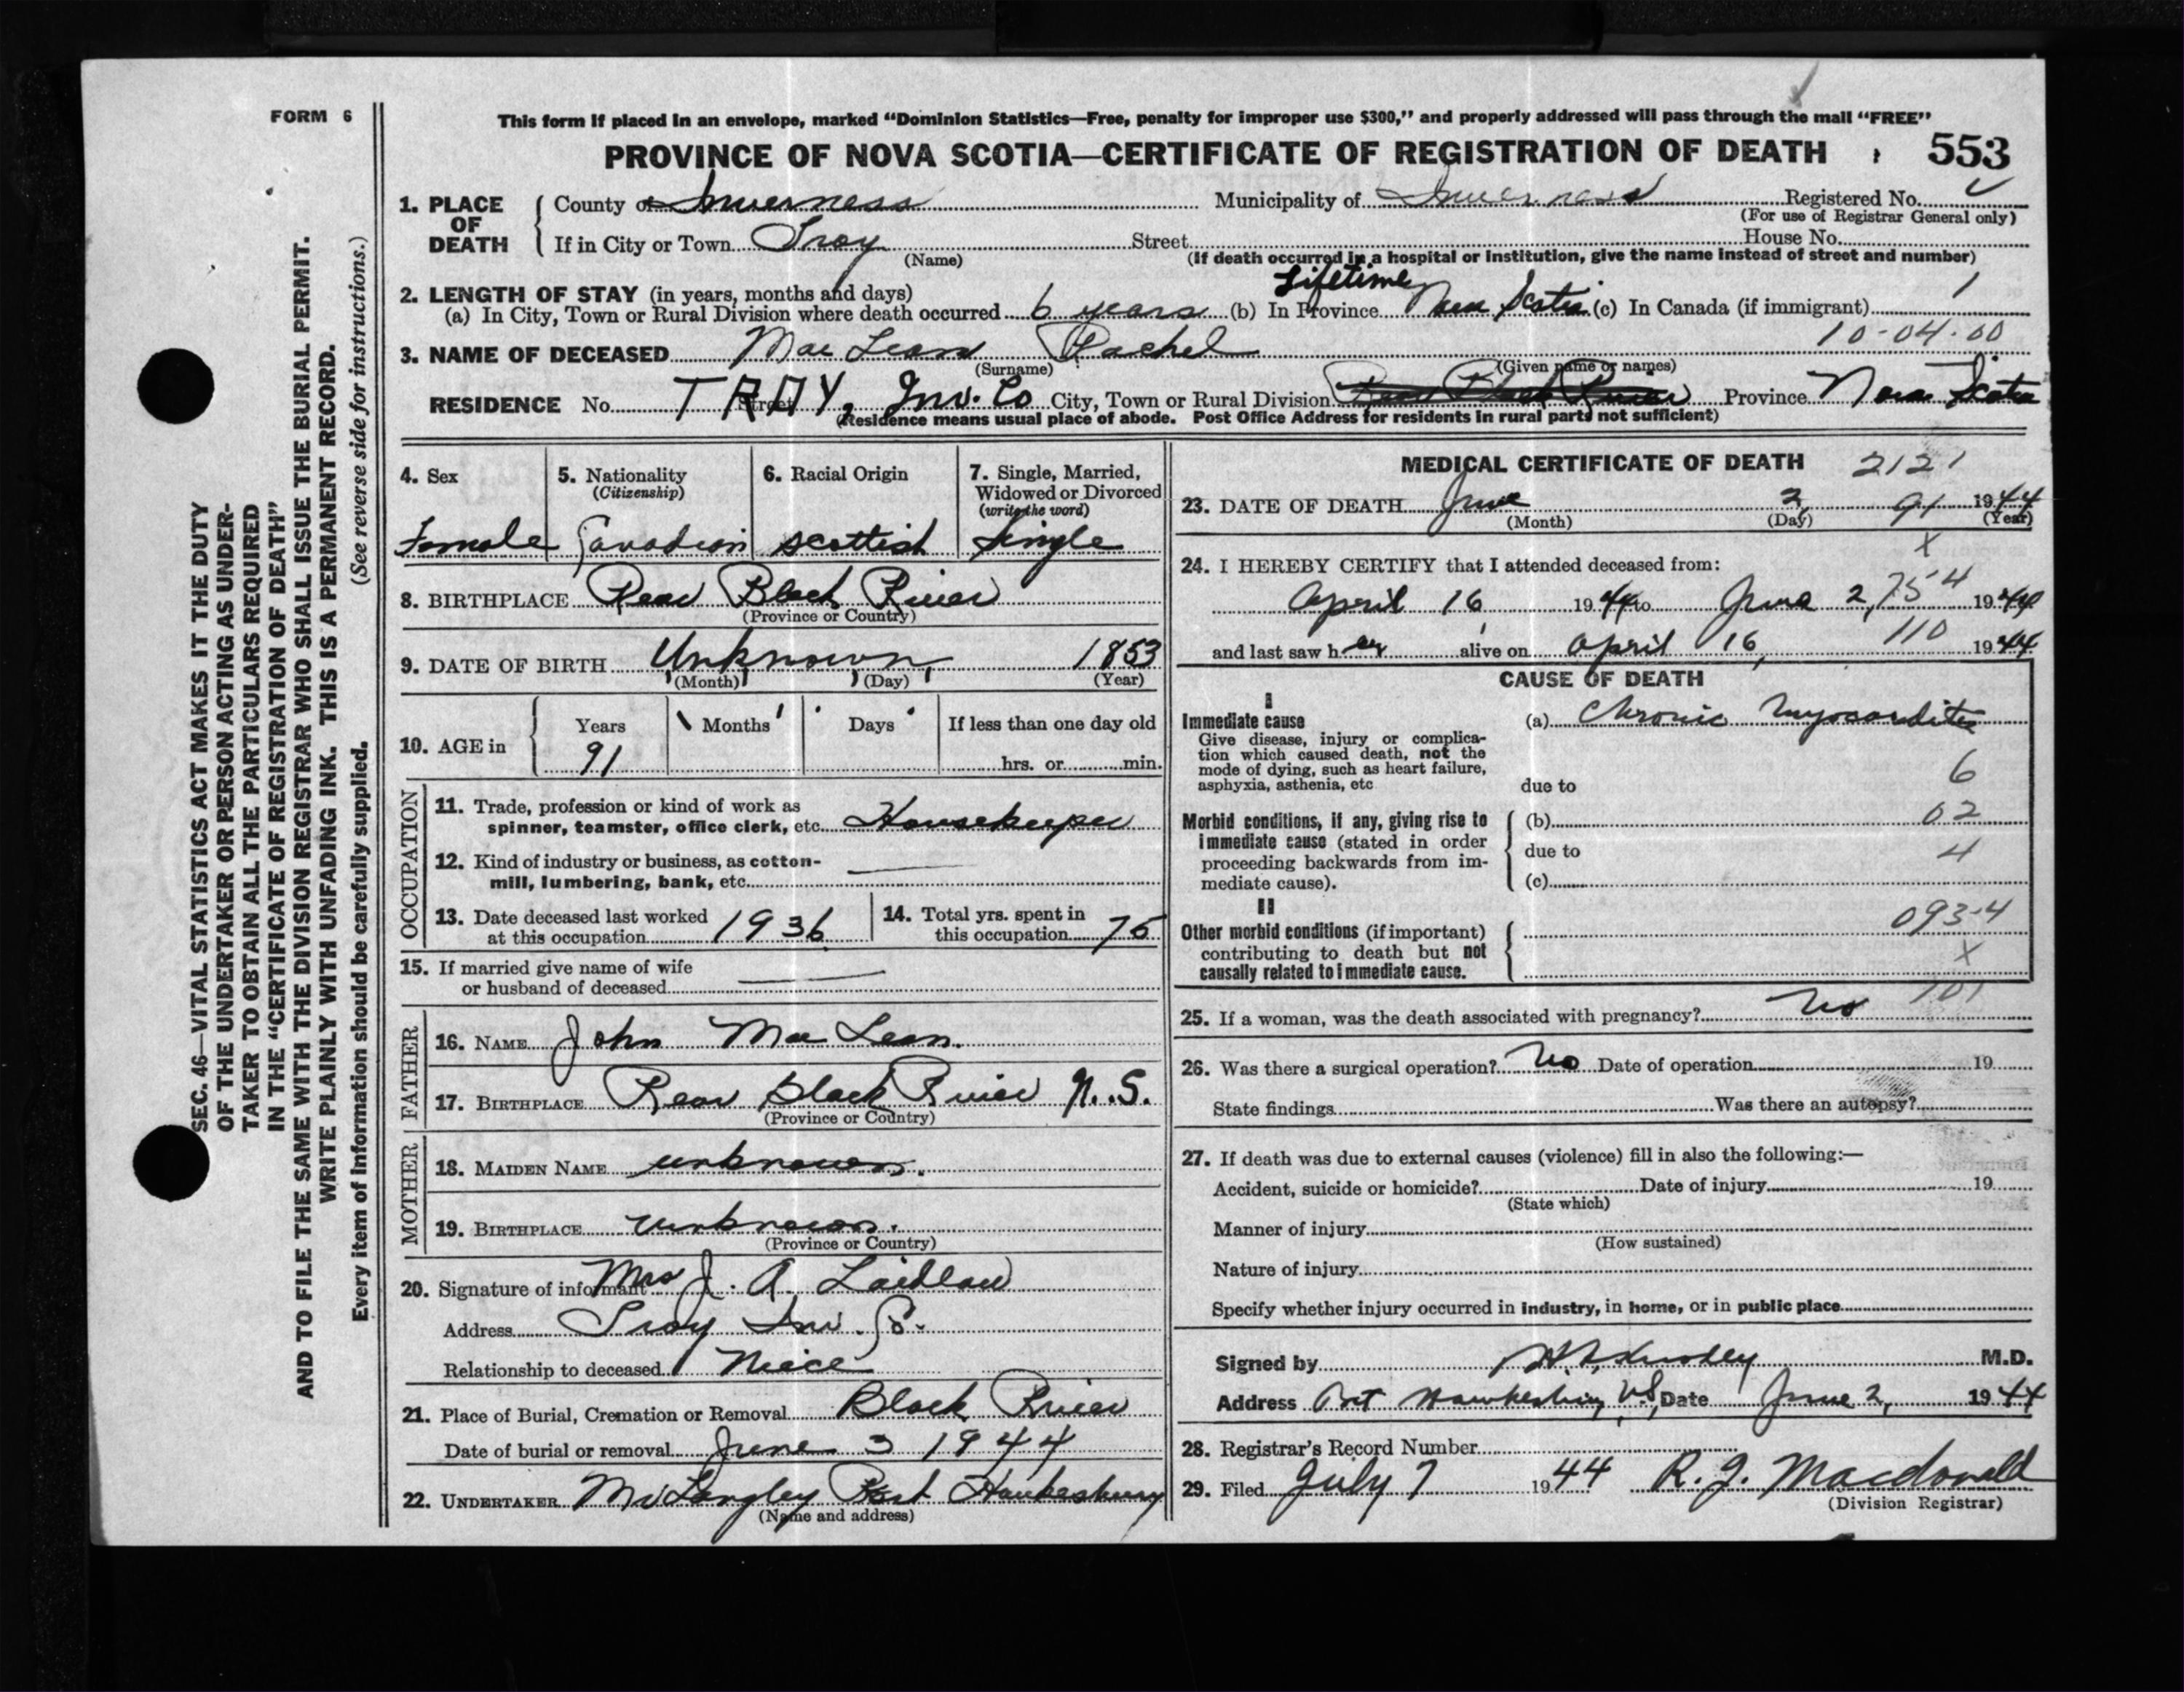 FORM 6
This form if placed in an envelope, marked “Dominion Statistics—Free, penalty for improper use $300,” and properly addressed will pass through the mail “FREE”
PROVINCE OF NOVA SCOTIA—CERTIFICATE OF REGISTRATION OF DEATH 553
1. PLACE OF DEATH
County of Inverness Municipality of Inverness Registered No.
(For use of Registrar General only)
If in City or Town Troy Street House No.
(Name) (If death occurred in a hospital or institution, give the name instead of street and number)
2. LENGTH OF STAY (in years, months and days) Lifetime
(a) In City, Town or Rural Division where death occurred 6 years (b) In Province Nova Scotia (c) In Canada (if immigrant) 1
10-04-00
3. NAME OF DECEASED Mac Lean Rachel
(Surname) (Given name or names)
RESIDENCE No. Street TROY, Inv. Co City, Town or Rural Division Rear Black River Province Nova Scotia
(Residence means usual place of abode. Post Office Address for residents in rural parts not sufficient)
4. Sex
Female
5. Nationality
(Citizenship)
Canadian
6. Racial Origin
Scottish
7. Single, Married,
Widowed or Divorced
(write the word)
Single
8. BIRTHPLACE Rear Black River
(Province or Country)
9. DATE OF BIRTH Unknown 1853
(Month) (Day) (Year)
10. AGE in Years Months Days If less than one day old
91 hrs. or min.
OCCUPATION
11. Trade, profession or kind of work as
spinner, teamster, office clerk, etc. Housekeeper
12. Kind of industry or business, as cotton-
mill, lumbering, bank, etc.
13. Date deceased last worked
at this occupation 1936
14. Total yrs. spent in
this occupation 75
15. If married give name of wife
or husband of deceased
FATHER
16. NAME John Mac Lean.
17. BIRTHPLACE Rear Black River N.S.
(Province or Country)
MOTHER
18. MAIDEN NAME unknown.
19. BIRTHPLACE unknown.
(Province or Country)
20. Signature of informant Mrs J. A. Laidlaw
Address Troy Inv. Co.
Relationship to deceased Niece
21. Place of Burial, Cremation or Removal Black River
Date of burial or removal June 3 1944
22. UNDERTAKER Langley Port Hawkesbury
(Name and address)
MEDICAL CERTIFICATE OF DEATH 2121
23. DATE OF DEATH June 2, 91 1944
(Month) (Day) (Year)
X
24. I HEREBY CERTIFY that I attended deceased from:
April 16 1944 to June 2, 754 1944
and last saw her alive on April 16, 110 1944
CAUSE OF DEATH
I
Immediate cause
Give disease, injury or complica-
tion which caused death, not the
mode of dying, such as heart failure,
asphyxia, asthenia, etc
(a) Chronic Myocarditis
6
due to
Morbid conditions, if any, giving rise to
immediate cause (stated in order
proceeding backwards from im-
mediate cause).
(b) 02
due to 4
(c)
II
Other morbid conditions (if important)
contributing to death but not
causally related to immediate cause.
093-4
X
101
25. If a woman, was the death associated with pregnancy? No
26. Was there a surgical operation? No Date of operation 19
State findings Was there an autopsy?
27. If death was due to external causes (violence) fill in also the following:—
Accident, suicide or homicide? Date of injury 19
(State which)
Manner of injury
(How sustained)
Nature of injury
Specify whether injury occurred in industry, in home, or in public place
Signed by M.D.
Address Port Hawkesbury, N.S, Date June 2, 1944
28. Registrar's Record Number
29. Filed July 7 1944 R. J. Macdonald
(Division Registrar)
SEC. 46—VITAL STATISTICS ACT MAKES IT THE DUTY
OF THE UNDERTAKER OR PERSON ACTING AS UNDER-
TAKER TO OBTAIN ALL THE PARTICULARS REQUIRED
IN THE “CERTIFICATE OF REGISTRATION OF DEATH”
AND TO FILE THE SAME WITH THE DIVISION REGISTRAR WHO SHALL ISSUE THE BURIAL PERMIT.
WRITE PLAINLY WITH UNFADING INK. THIS IS A PERMANENT RECORD.
Every item of information should be carefully supplied. (See reverse side for instructions.)